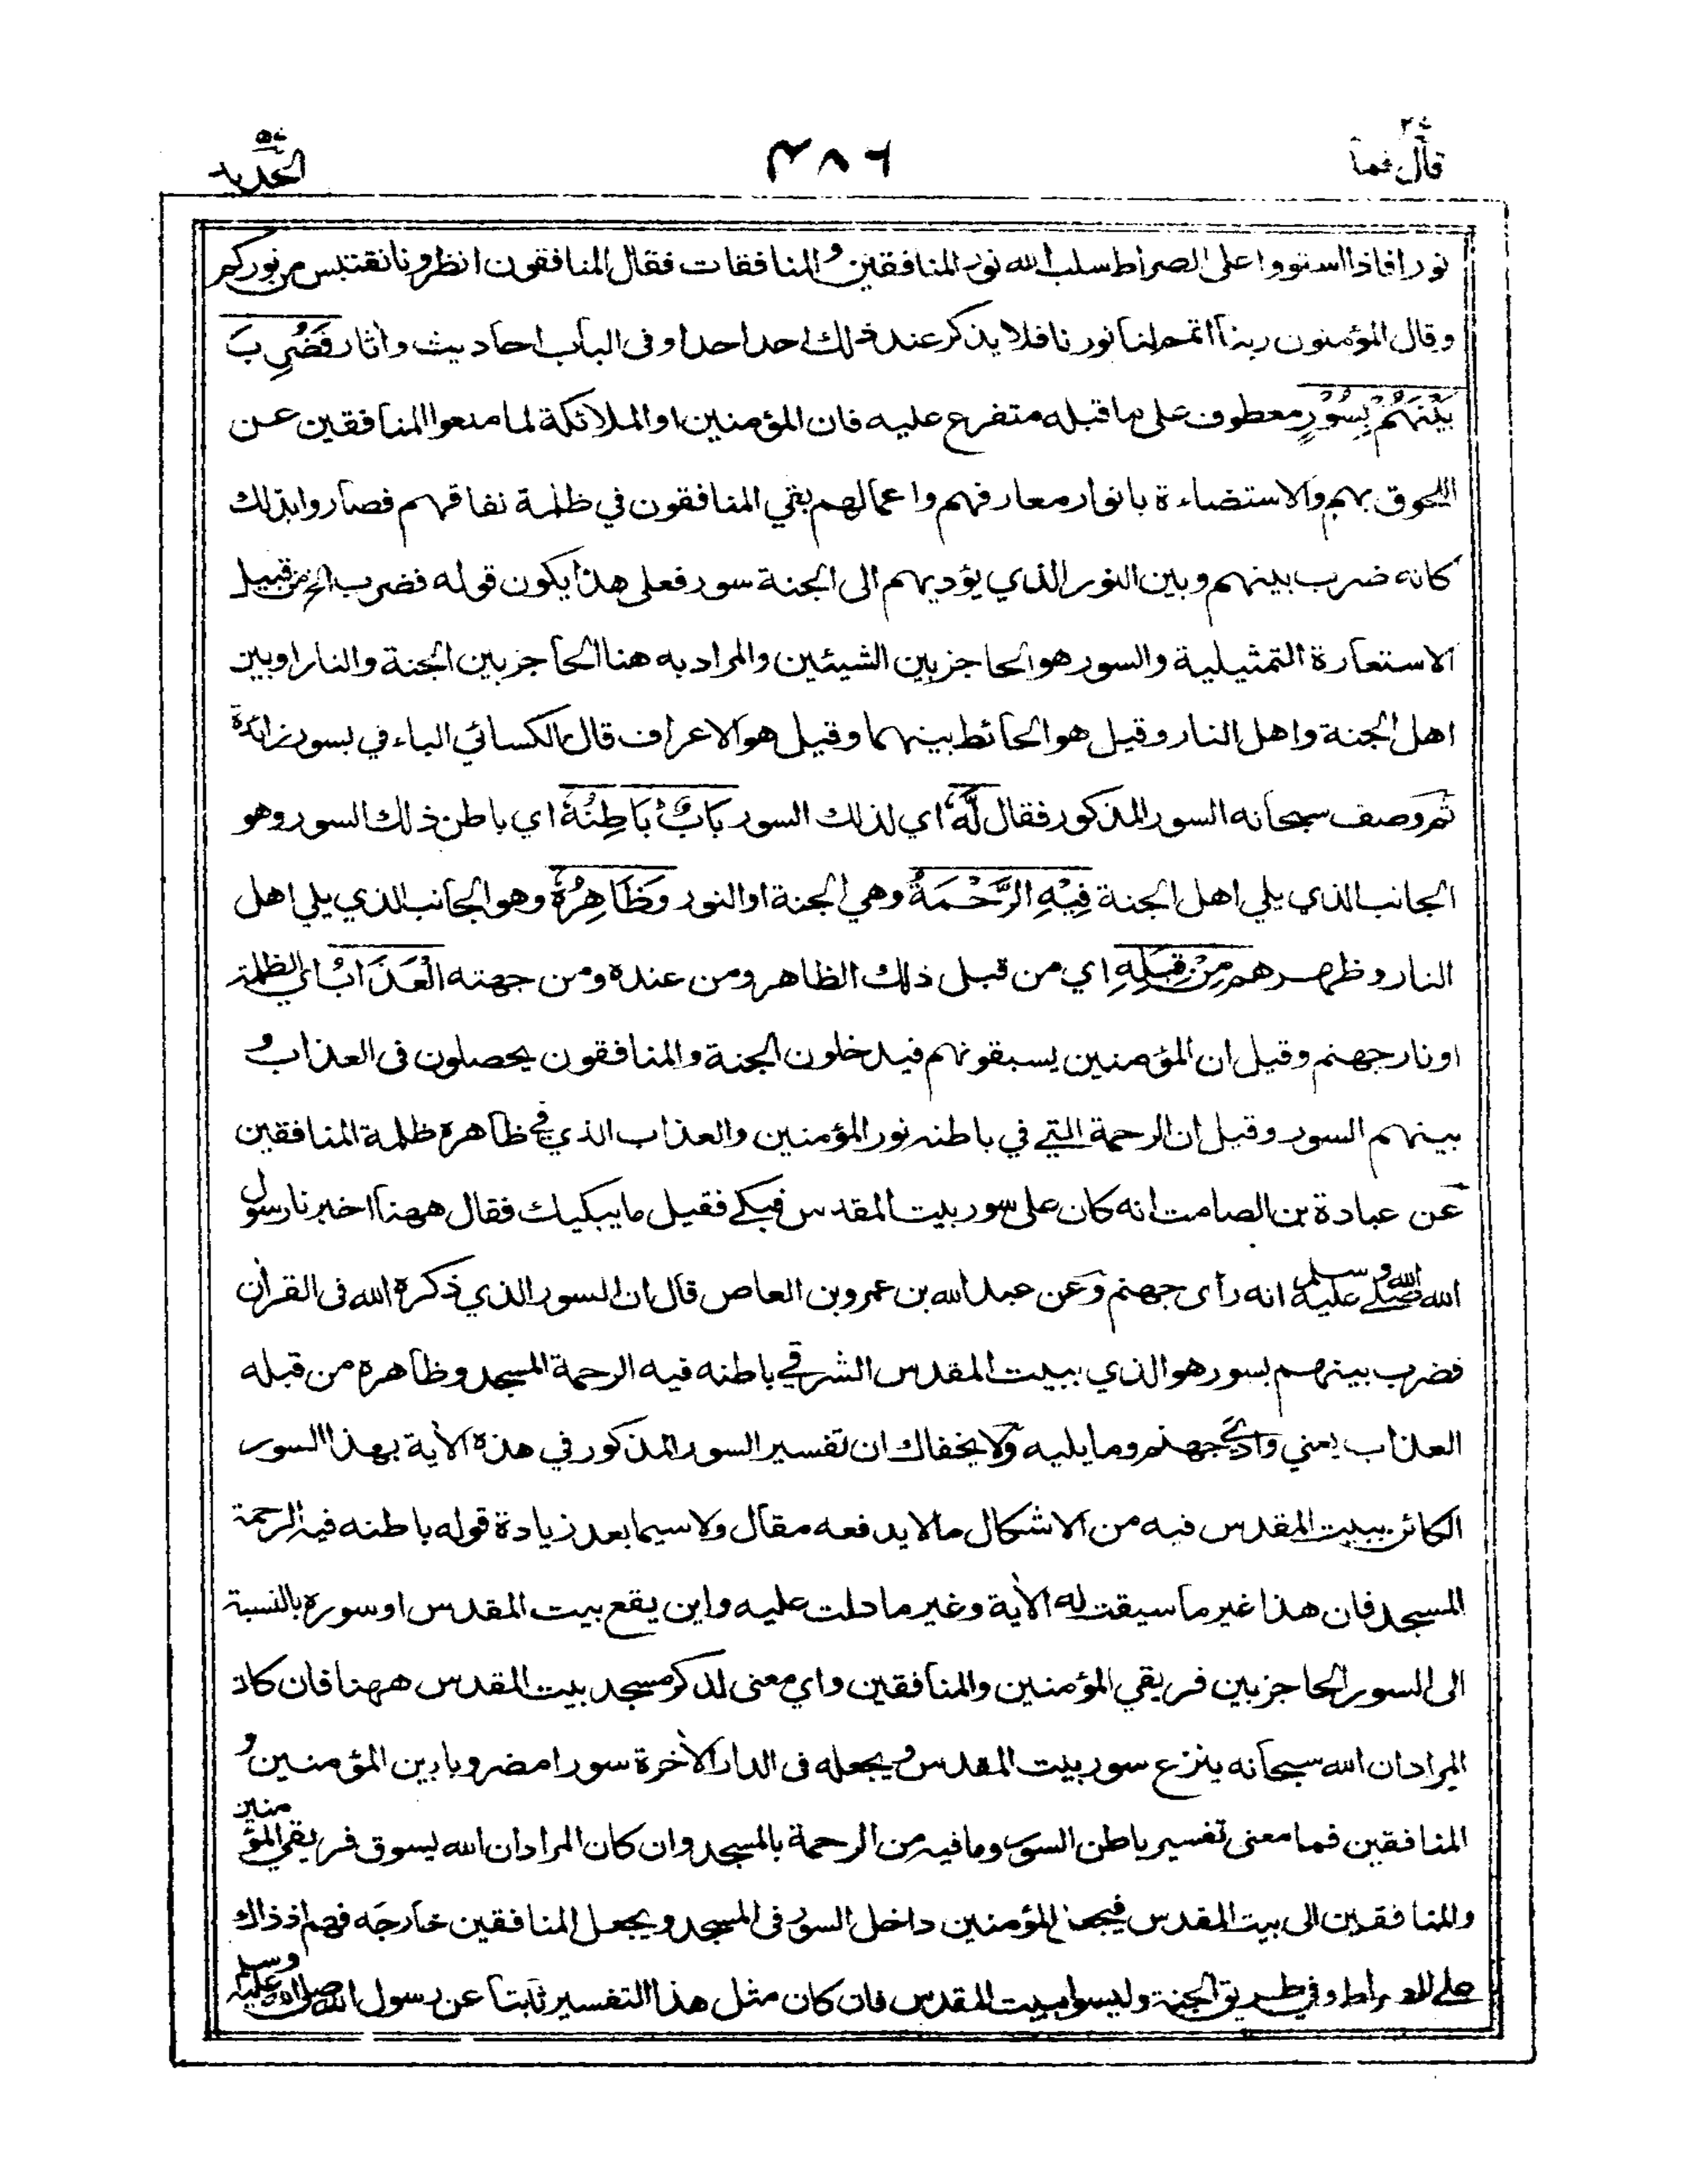 قال فما ٢٧
٤٨٦
الحديد ٥٧
نورا فاذا استووا على الصراط سلب الله نور المنافقين والمنافقات فقال المنافقون انظرونا نقتبس من نوركم
وقال المؤمنون ربنا اتمم لنا نورنا فلا يذكر عند ذلك احد احدا وفى الباب احاديث واثار فَضُرِبَ
بَيْنَهُمْ بِسُوْرٍ معطوف على ما قبله متفرع عليه فان المؤمنين او الملائكة لما منعوا المنافقين عن
اللحوق بهم والاستضاءة بانوار معارفهم واعمالهم بقي المنافقون في ظلمة نفاقهم فصاروا بذلك
كانه ضرب بينهم وبين النور الذي يؤديهم الى الجنة سور فعلى هذا يكون قوله فضرب الخ من قبيل
الاستعارة التمثيلية والسور هو الحاجز بين الشيئين والمراد به هنا الحاجز بين الجنة والنار او بين
اهل الجنة واهل النار وقيل هو الحائط بينهما وقيل هو الاعراف قال الكسائي الباء في بسور زائدة
ثم وصف سبحانه السور المذكور فقال لَّهٗ اي لذلك السور بَابٌ بَاطِنُهٗ اي باطن ذلك السور وهو
الجانب الذي يلي اهل الجنة فِيْهِ الرَّحْمَةُ وهي الجنة او النور وَظَاهِرُهٗ وهو الجانب الذي يلي اهل
النار وظهر هم مِنْ قِبَلِهِ اي من قبل ذلك الظاهر ومن عنده ومن جهته الْعَذَابُ اي الظلمة
او نار جهنم وقيل ان المؤمنين يسبقونهم فيدخلون الجنة والمنافقون يحصلون فى العذاب و
بينهم السور وقيل ان الرحمة التي في باطنه نور المؤمنين والعذاب الذي في ظاهره ظلمة المنافقين
عن عبادة بن الصامت انه كان على سور بيت المقدس فبكى فقيل ما يبكيك فقال ههنا اخبرنا رسول
الله صلى الله عليه وسلم انه رأى جهنم وعن عبد الله بن عمرو بن العاص قال ان السور الذي ذكره الله فى القرآن
فضرب بينهم بسور هو الذي ببيت المقدس الشرقي باطنه فيه الرحمة المسجد وظاهره من قبله
العذاب يعني وادي جهنم وما يليه ولا يخفاك ان تفسير السور المذكور في هذه الآية بهذا السور
الكائن ببيت المقدس فيه من الاشكال ما لا يدفعه مقال ولا سيما بعد زيادة قوله باطنه فيه الرحمة
المسجد فان هذا غير ما سيقت له الآية وغير ما دلت عليه واين يقع بيت المقدس او سوره بالنسبة
الى السور الحاجز بين فريقي المؤمنين والمنافقين واي معنى لذكر مسجد بيت المقدس ههنا فان كان
المراد ان الله سبحانه ينزع سور بيت المقدس ويجعله فى الدار الآخرة سورا مضروبا بين المؤمنين و
المنافقين فما معنى تفسير باطن السور وما فيه من الرحمة بالمسجد وان كان المراد ان الله يسوق فريقي المؤمنين
والمنافقين الى بيت المقدس فيجعل المؤمنين داخل السور فى المسجد ويجعل المنافقين خارجه فهم اذ ذاك
على الصراط وفي طريق الجنة وليسوا ببيت المقدس فان كان مثل هذا التفسير ثابتا عن رسول الله صلى الله عليه وسلم